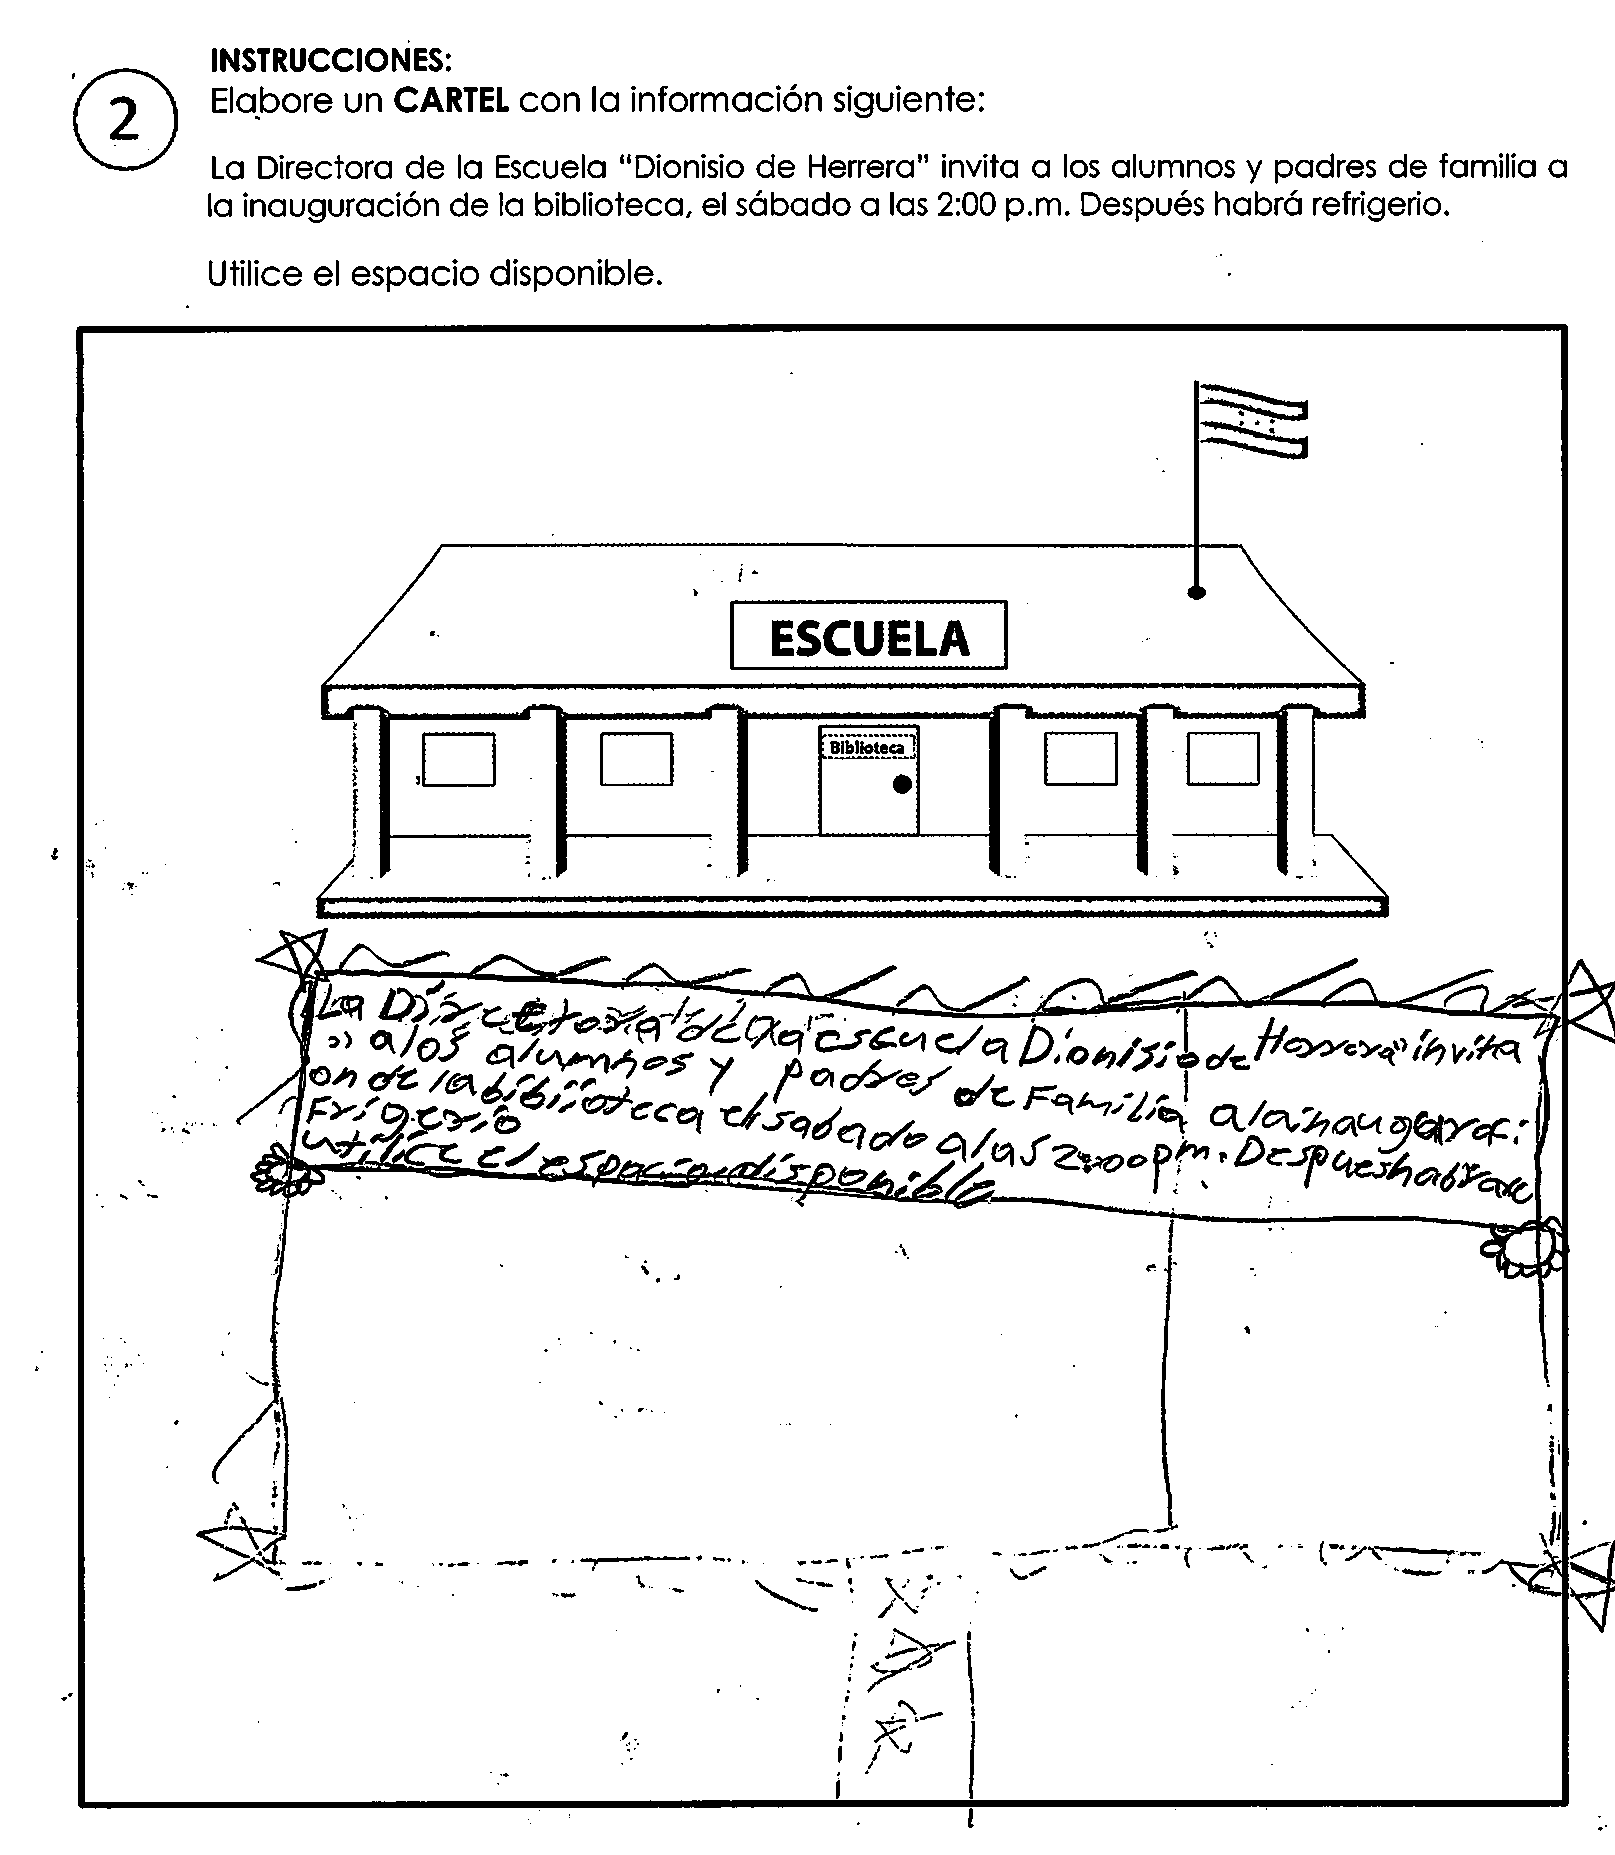 INSTRUCCIONES:
2
Elabore un CARTEL con la información siguiente:
La Directora de la Escuela "Dionisio de Herrera" invita a los alumnos y padres de familia a
la inauguración de la biblioteca, el sábado a las 2:00 p.m. Después habrá refrigerio.
Utilice el espacio disponible.
ESCUELA
Biblioteca
La Directora de la escuela Dionisio de Herrera" invita
" a los alumnos y padres de Familia a la inaugura ci
on de la bibiioteca el sabado a las 2:00 pm. Despues habra re
Frigerio
utilice el espacio disponible